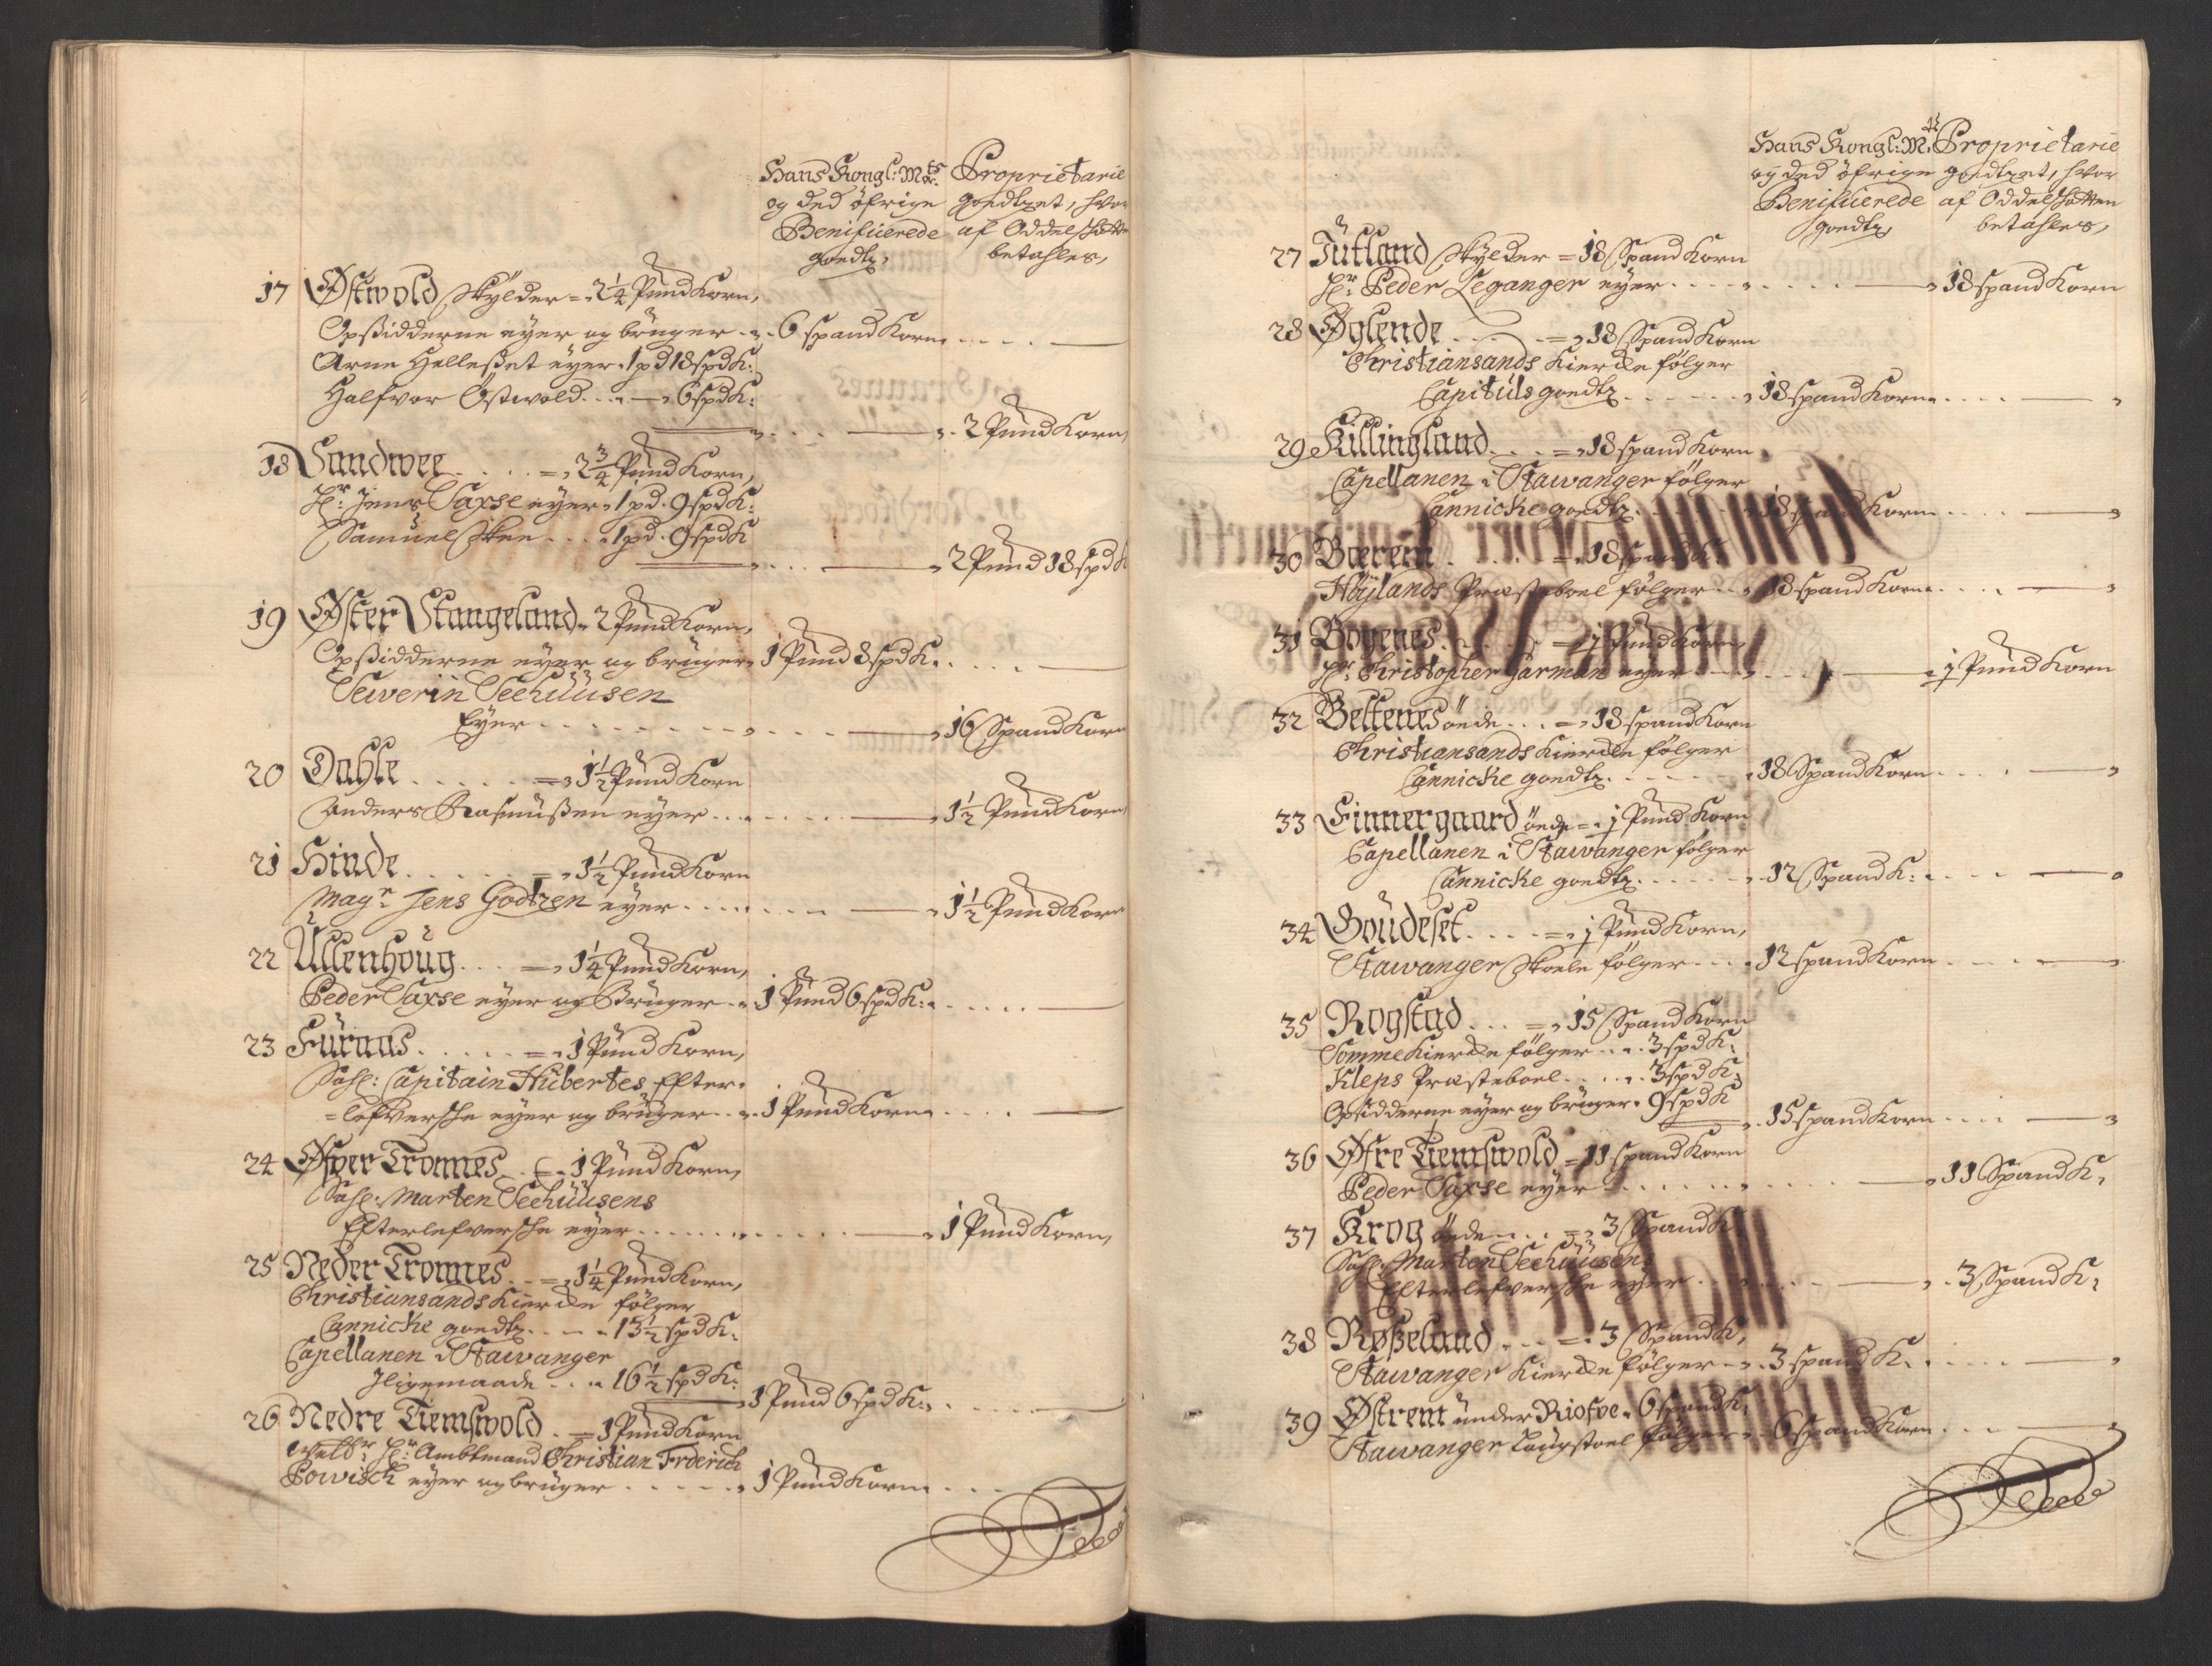 Hans Kongl: Mts Proprietarie
og ded öfrige goedtzet, hvor
Benificerede af Oddelskatten
goedtz, betahles,
17 Østwold skÿlder = 2 1/4 Pund Korn,
Opsidderne eÿer og bruger 6 spand Korn
Arne Hellesøet eÿer 1 pd 18 spd K:
Halfvor Östwold 6 spd K:
2 Pund Korn,
18 Sandwee = 2 3/4 Pund Korn,
Hr: Jens Saxse eÿer 1 pd. 9 spd K:
Samuel Skeen 1 pd. 9 spd K
2 Pund 18 spd K
19 Øster Stangeland 2 Pund Korn,
Opsidderne eÿer og bruger 1 Pund 8 spd K.
Severin Seehuusen
Eÿer 16 Spand Korn
20 Dahle = 1 1/2 Pund Korn
Anders Rasmussen eÿer 1 1/2 Pund Korn
21 Hinde = 1 1/2 Pund Korn
Magr Jens Godtzen eÿer 1 1/2 Pund Korn
22 Ullenhoug = 1 1/4 Pund Korn,
Peder Saxse eÿer og Bruger 1 Pund 6 spd K:
23 Furaas = 1 Pund Korn,
Sahl: Capitain Hubertes Efter-
=lefversche eÿer og bruger 1 Pund Korn
24 Øfver Tronnes = 1 Pund Korn,
Sahl. Marten Seehuusens
Efterlefversche eÿer 1 Pund Korn,
25 Neder Tronnes = 1 1/4 Pund Korn,
Christiansands Kiercke fölger
Cannicke goedtz 13 1/2 spd K:
Capellanen i Stawanger
Iligemaade 16 1/2 spd K:
1 Pund 6 spd K:
26 Nedre Tiemswold = 1 Pund Korn
Welbr Hr: Ambtmand Christian Frderich
Powisch eÿer og bruger 1 Pund Korn
Hans Kongl: Mts Proprietarie
og ded öfrige goedtzet, hvor
Benificerede af Oddelskatten
goedtz, betahles,
27 Jutland skÿlder = 18 Spand Korn
Hr: Peder Leganger eÿer 18 spand Korn
28 Øglende = 18 Spand Korn
Christiansands Kiercke fölger
Capituls goedtz 18 spand Korn
29 Killingland = 18 spand Korn
Capellanen i Stawanger fölger
Cannicke goedtz 18 spand Korn
30 Bærem = 18 spand K
Höÿlands Præsteboel fölger 18 spand Korn
31 Boyenes = 1 Pund Korn,
Hr: Christopher Garman eÿer 1 Pund Korn
32 Beltenes öede = 18 spand Korn
Christiansands Kiercke fölger
Cannicke goedtz 18 Spand Korn
33 Finnergaard öede = 1 Pund Korn
Capellanen i Stawanger fölger
Cannicke goedtz 12 Spand K:
34 Goudeset = 1 Pund Korn,
Stawanger Skoele fölger 12 spand Korn
35 Rogstad = 15 Spand Korn
Somme Kiercke fölger 3 spd K:
Kleps Præsteboel 3 spd K:
Opsidderne eÿer og bruger 9 spd K
15 spand Korn
36 Øfre Tiemswold = 11 spand Korn
Peder Saxse eÿer 11 Spand K,
37 Krog öede = 3 Spand K
Sahl. Marten Seehuusens
Efterlefversche eÿer 3 Spand K,
38 Røsseland = 3 Spand K,
Stawanger Kiercke fölger 3 spand K.
39 Østrem under Riosve 6 spand K,
Stawanger Laugstoel fölger 6 spand Korn